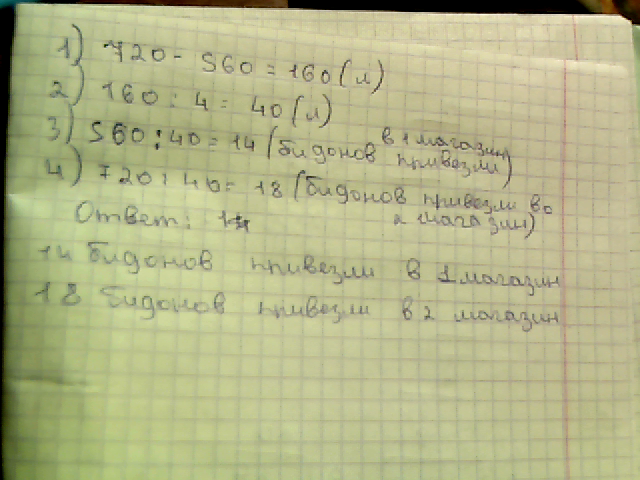 1) 720 - 560 = 160 (л)
2) 160 : 4 = 40 (л)
3) 560 : 40 = 14 (бидонов привезли в 1 магазин)
4) 720 : 40 = 18 (бидонов привезли во 2 магазин)
Ответ:
14 бидонов привезли в 1 магазин
18 бидонов привезли в 2 магазин